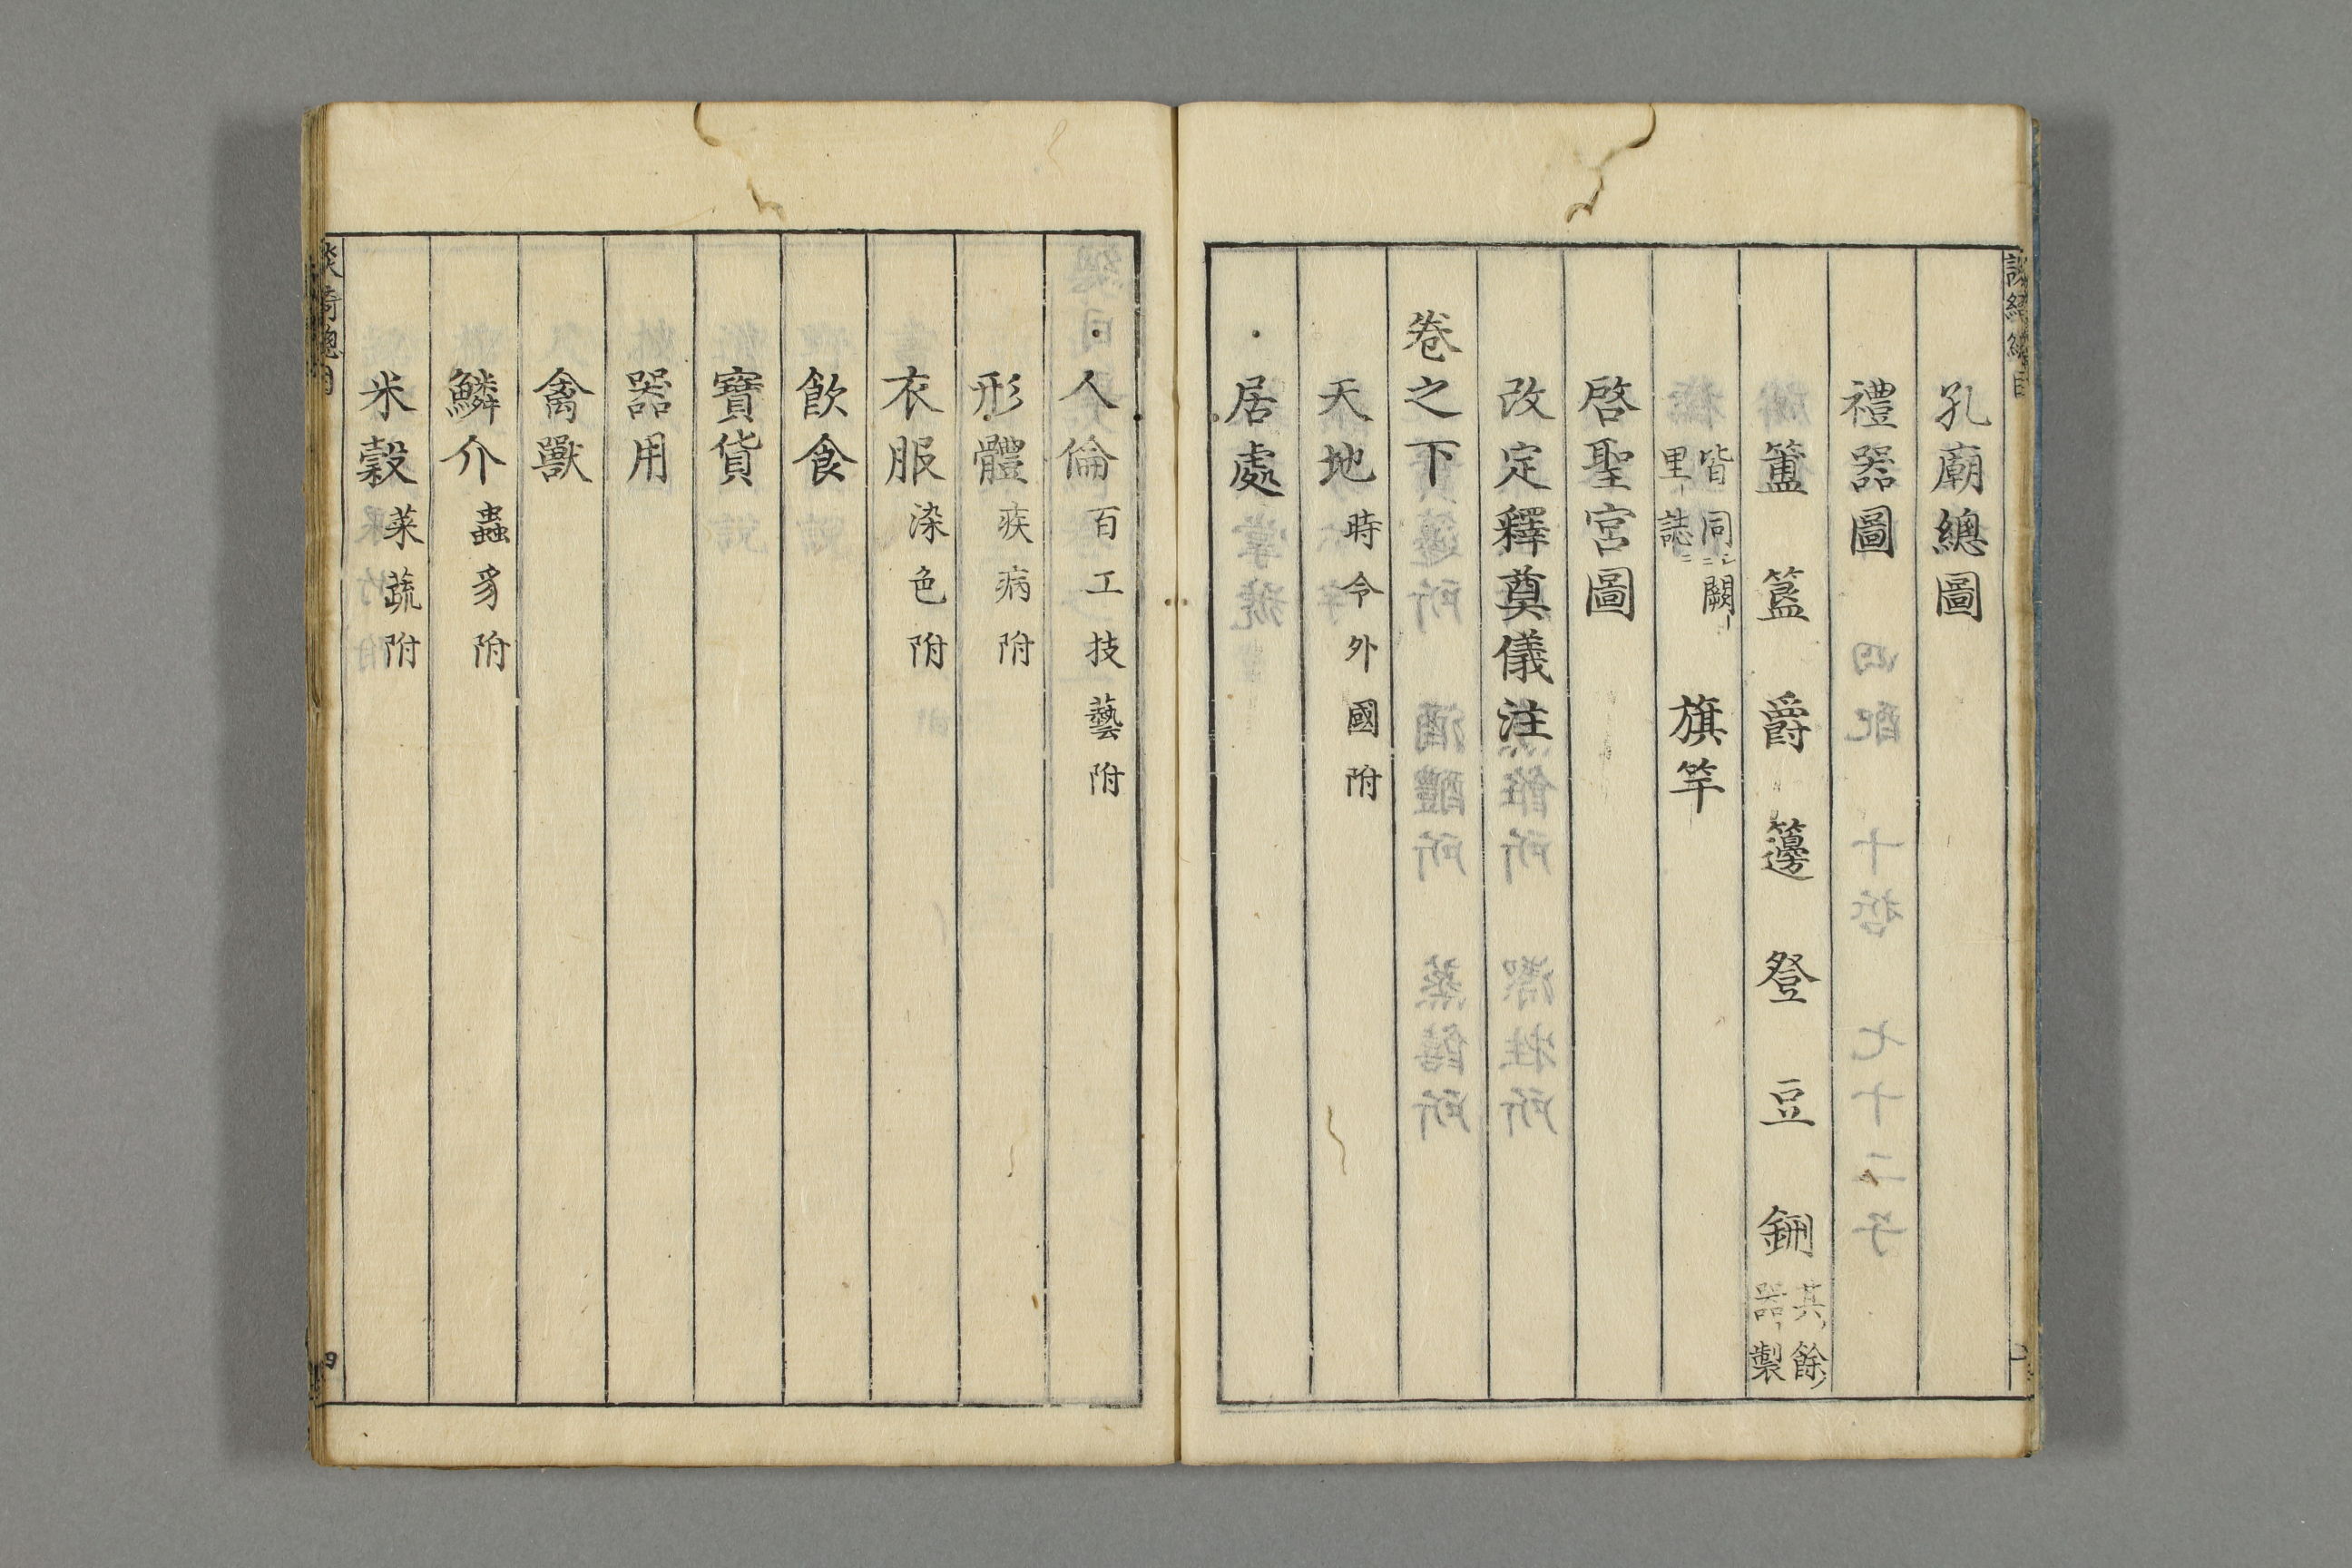 孔廟總圖
禮器圖
簠　簋　爵　籩　豋　豆　鉶 其餘器製
皆同闕里誌　旗竿
啓聖宮圖
改定釋奠儀注
卷之下
天地 時令外國附
居處
人倫 百工技藝附
形體 疾病附
衣服 染色附
飲食
寶貨
器用
禽獸
鱗介 蟲豸附
米穀 菜蔬附